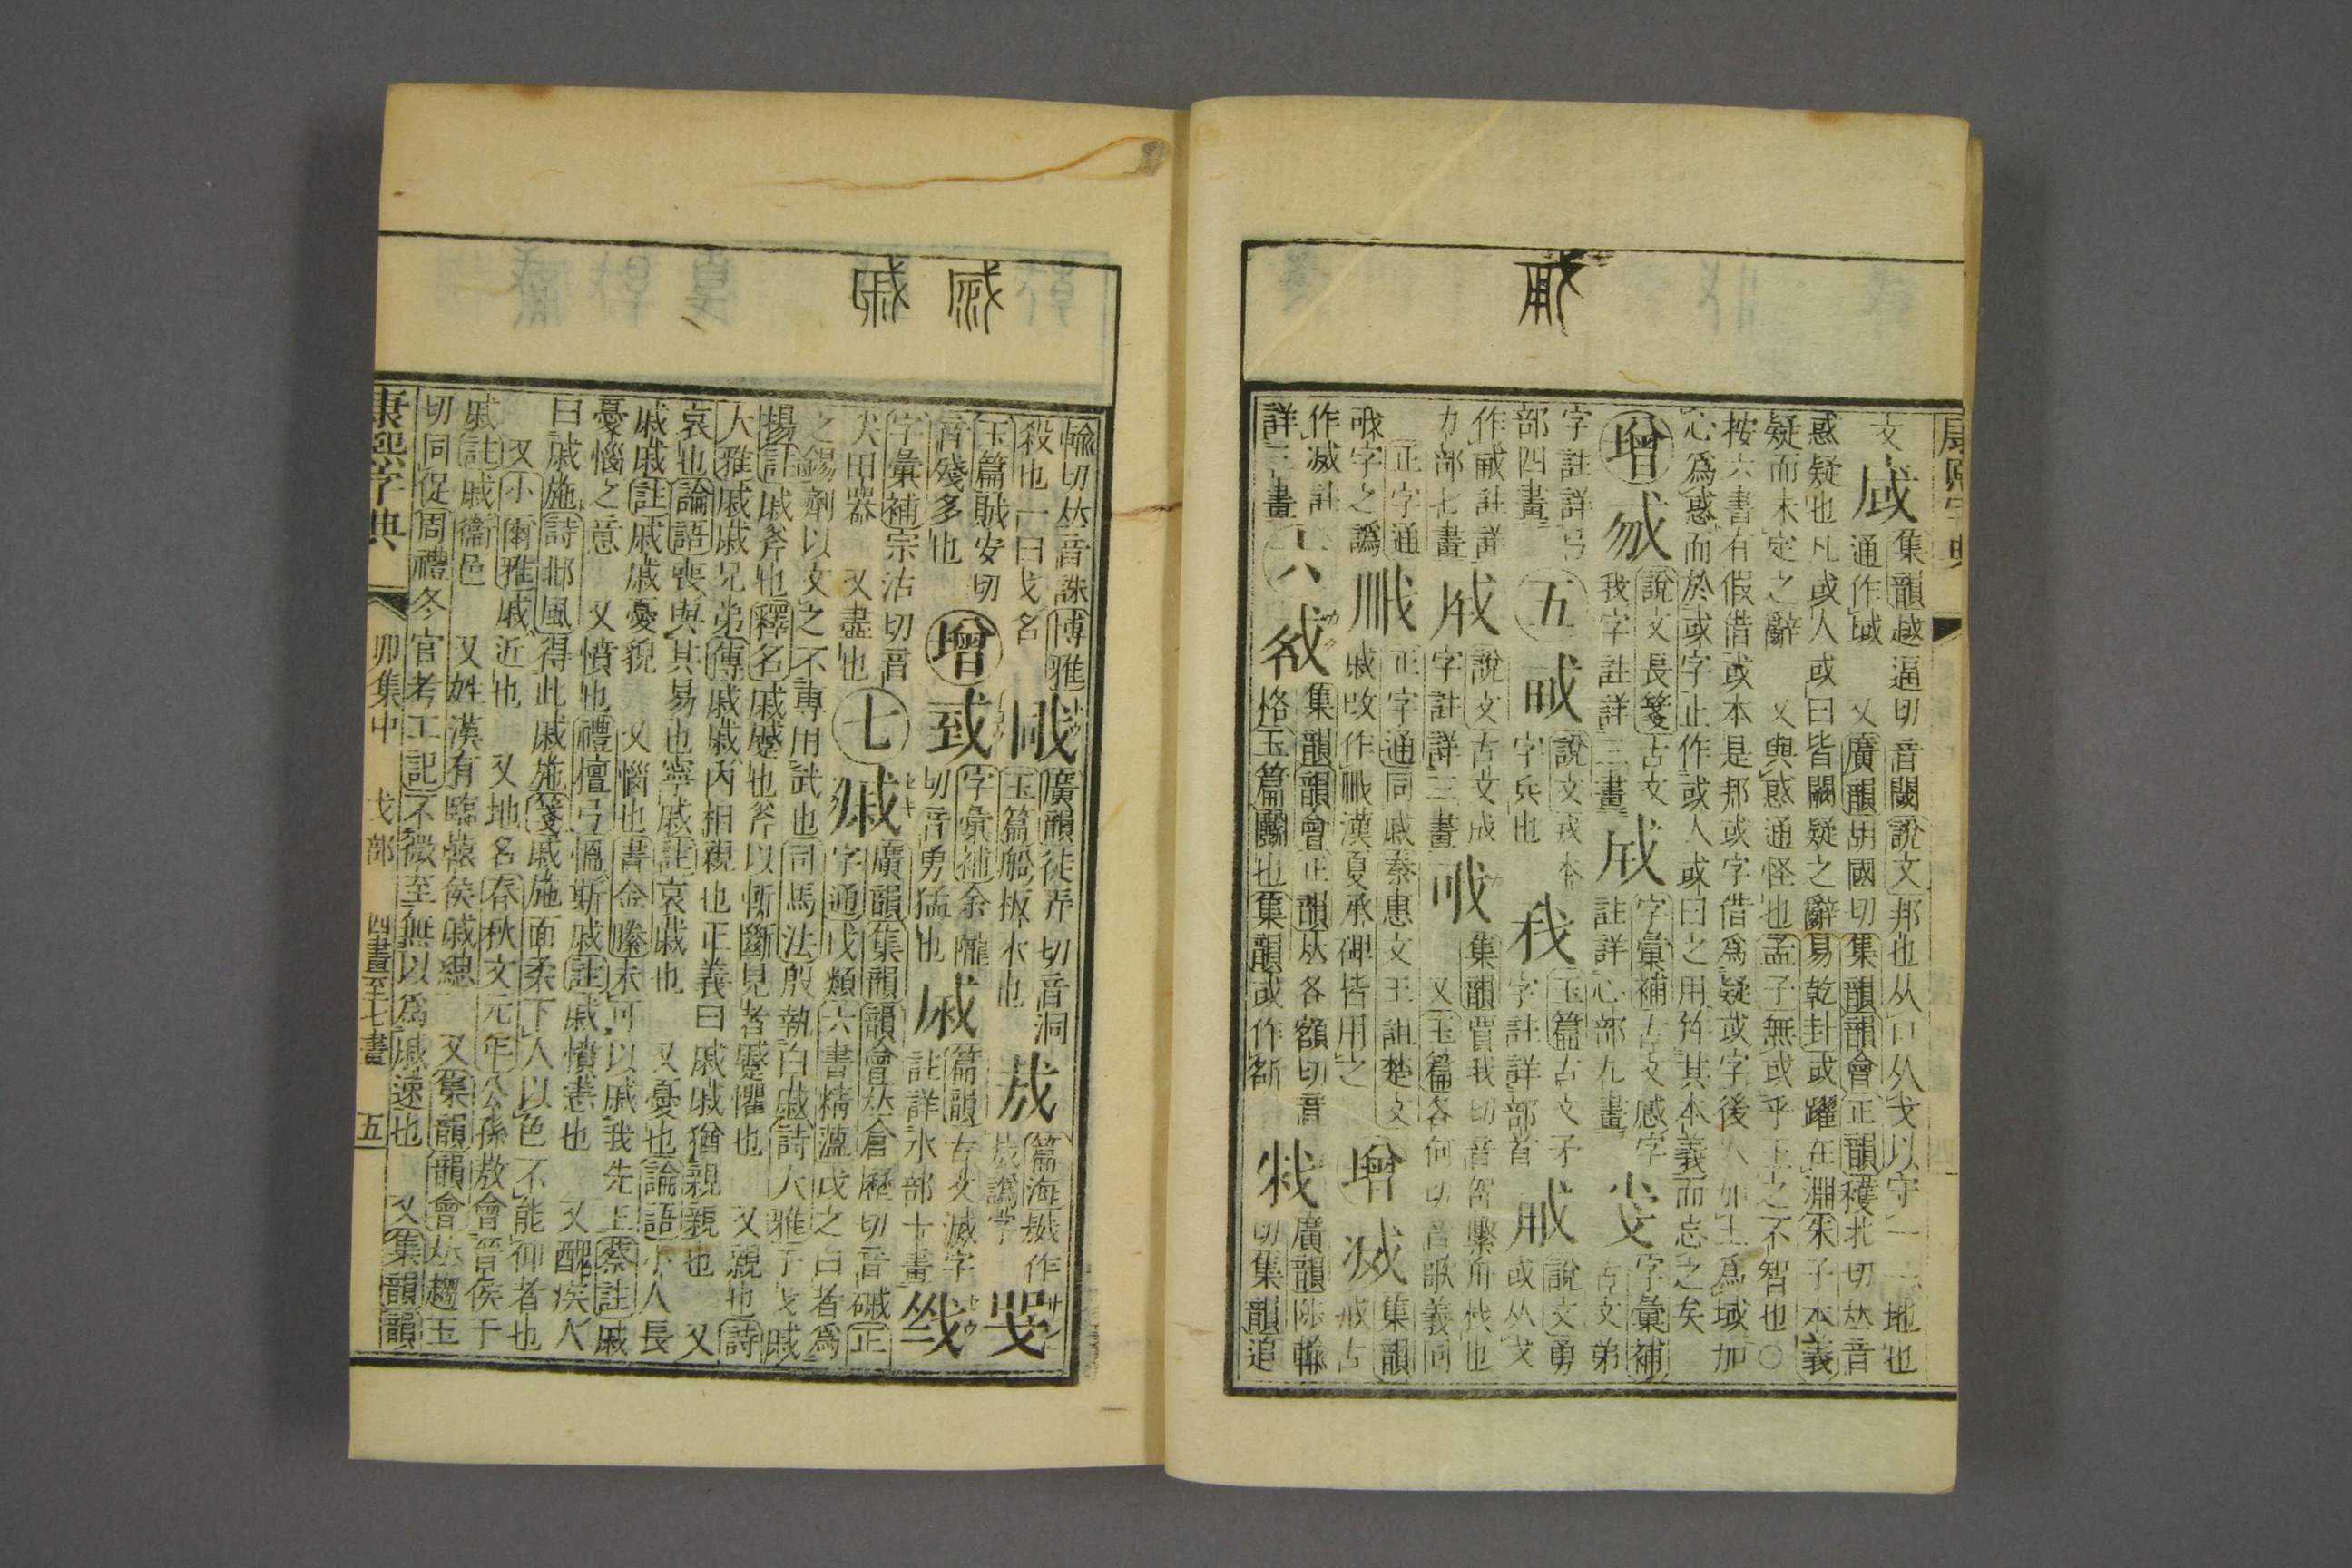 文
集韻越逼切音閾說文邦也从口从戈以守一一地也
通作域 又廣韻胡國切集韻韻會正韻穫北切𠀤音
惑疑也凡或人或曰皆闕疑之辭易乾卦或躍在淵朱子本義
疑而未定之辭 又與惑通怪也孟子無或乎王之不智也○
按六書有假借或本是邦或字借爲疑或字後人加土爲域加
心爲惑而於或字止作或人或曰之用幷其本義而忘之矣
增
說文長箋古文
我字註詳三畫
字彙補古文感字
註詳心部九畫
字彙補
古文弟
字註詳弓
部四畫
五
說文戎本
字兵也
玉篇古文矛
字註詳部首
戒
說文勇
或从戈
作戒註詳
力部七畫
說文古文成
字註詳三畫
集韻賈我切音哿繫舟杙也
又玉篇各何切音歌義同
正字通
哦字之譌
正字通同戚秦惠文王詛楚文
戚改作 漢夏承碑皆用之
增
集韻
戒古
作 註
詳三畫
六
集韻韻會正韻𠀤各額切音
格玉篇鬭也集韻或作
廣韻陟輸
切集韻追
輸切𠀤音誅博雅
殺也一曰戈名
廣韻徒弄切音洞
玉篇船板木也
篇海 作
烖譌字
玉篇賊安切
音殘多也
增
字彙補余隴
切音勇猛也
篇韻古文滅字
註詳水部十畫
字彙補宗沽切音
尖田器 又盡也
七
戚
廣韻集韻韻會𠀤倉歷切音磩正
字通戉類六書精薀戉之白者爲
之錫劑以文之不專用武也司馬法殷執白戚詩大雅干戈戚
揚註戚斧也釋名戚慼也斧以斬斷見者慼懼也 又親也詩
大雅戚戚兄弟傳戚戚內相親也正義曰戚戚猶親親也 又
哀也論語喪與其易也寧戚註哀戚也 又憂也論語小人長
戚戚註戚戚憂貌 又惱也書金縢未可以戚我先王蔡註戚
憂惱之意 又憤也禮檀弓慍斯戚註戚憤恚也 又醜疾人
曰戚施詩邶風得此戚施箋戚施面柔下人以色不能仰者也
又小爾雅戚近也 又地名春秋文元年公孫敖會晉侯于
戚註戚衞邑 又姓漢有臨轅侯戚鰓 又集韻韻會𠀤趨玉
切同促周禮冬官考工記不微至無以爲戚速也 又集韻韻
康熙字典 卯集中 戈部 四畫至七畫 五